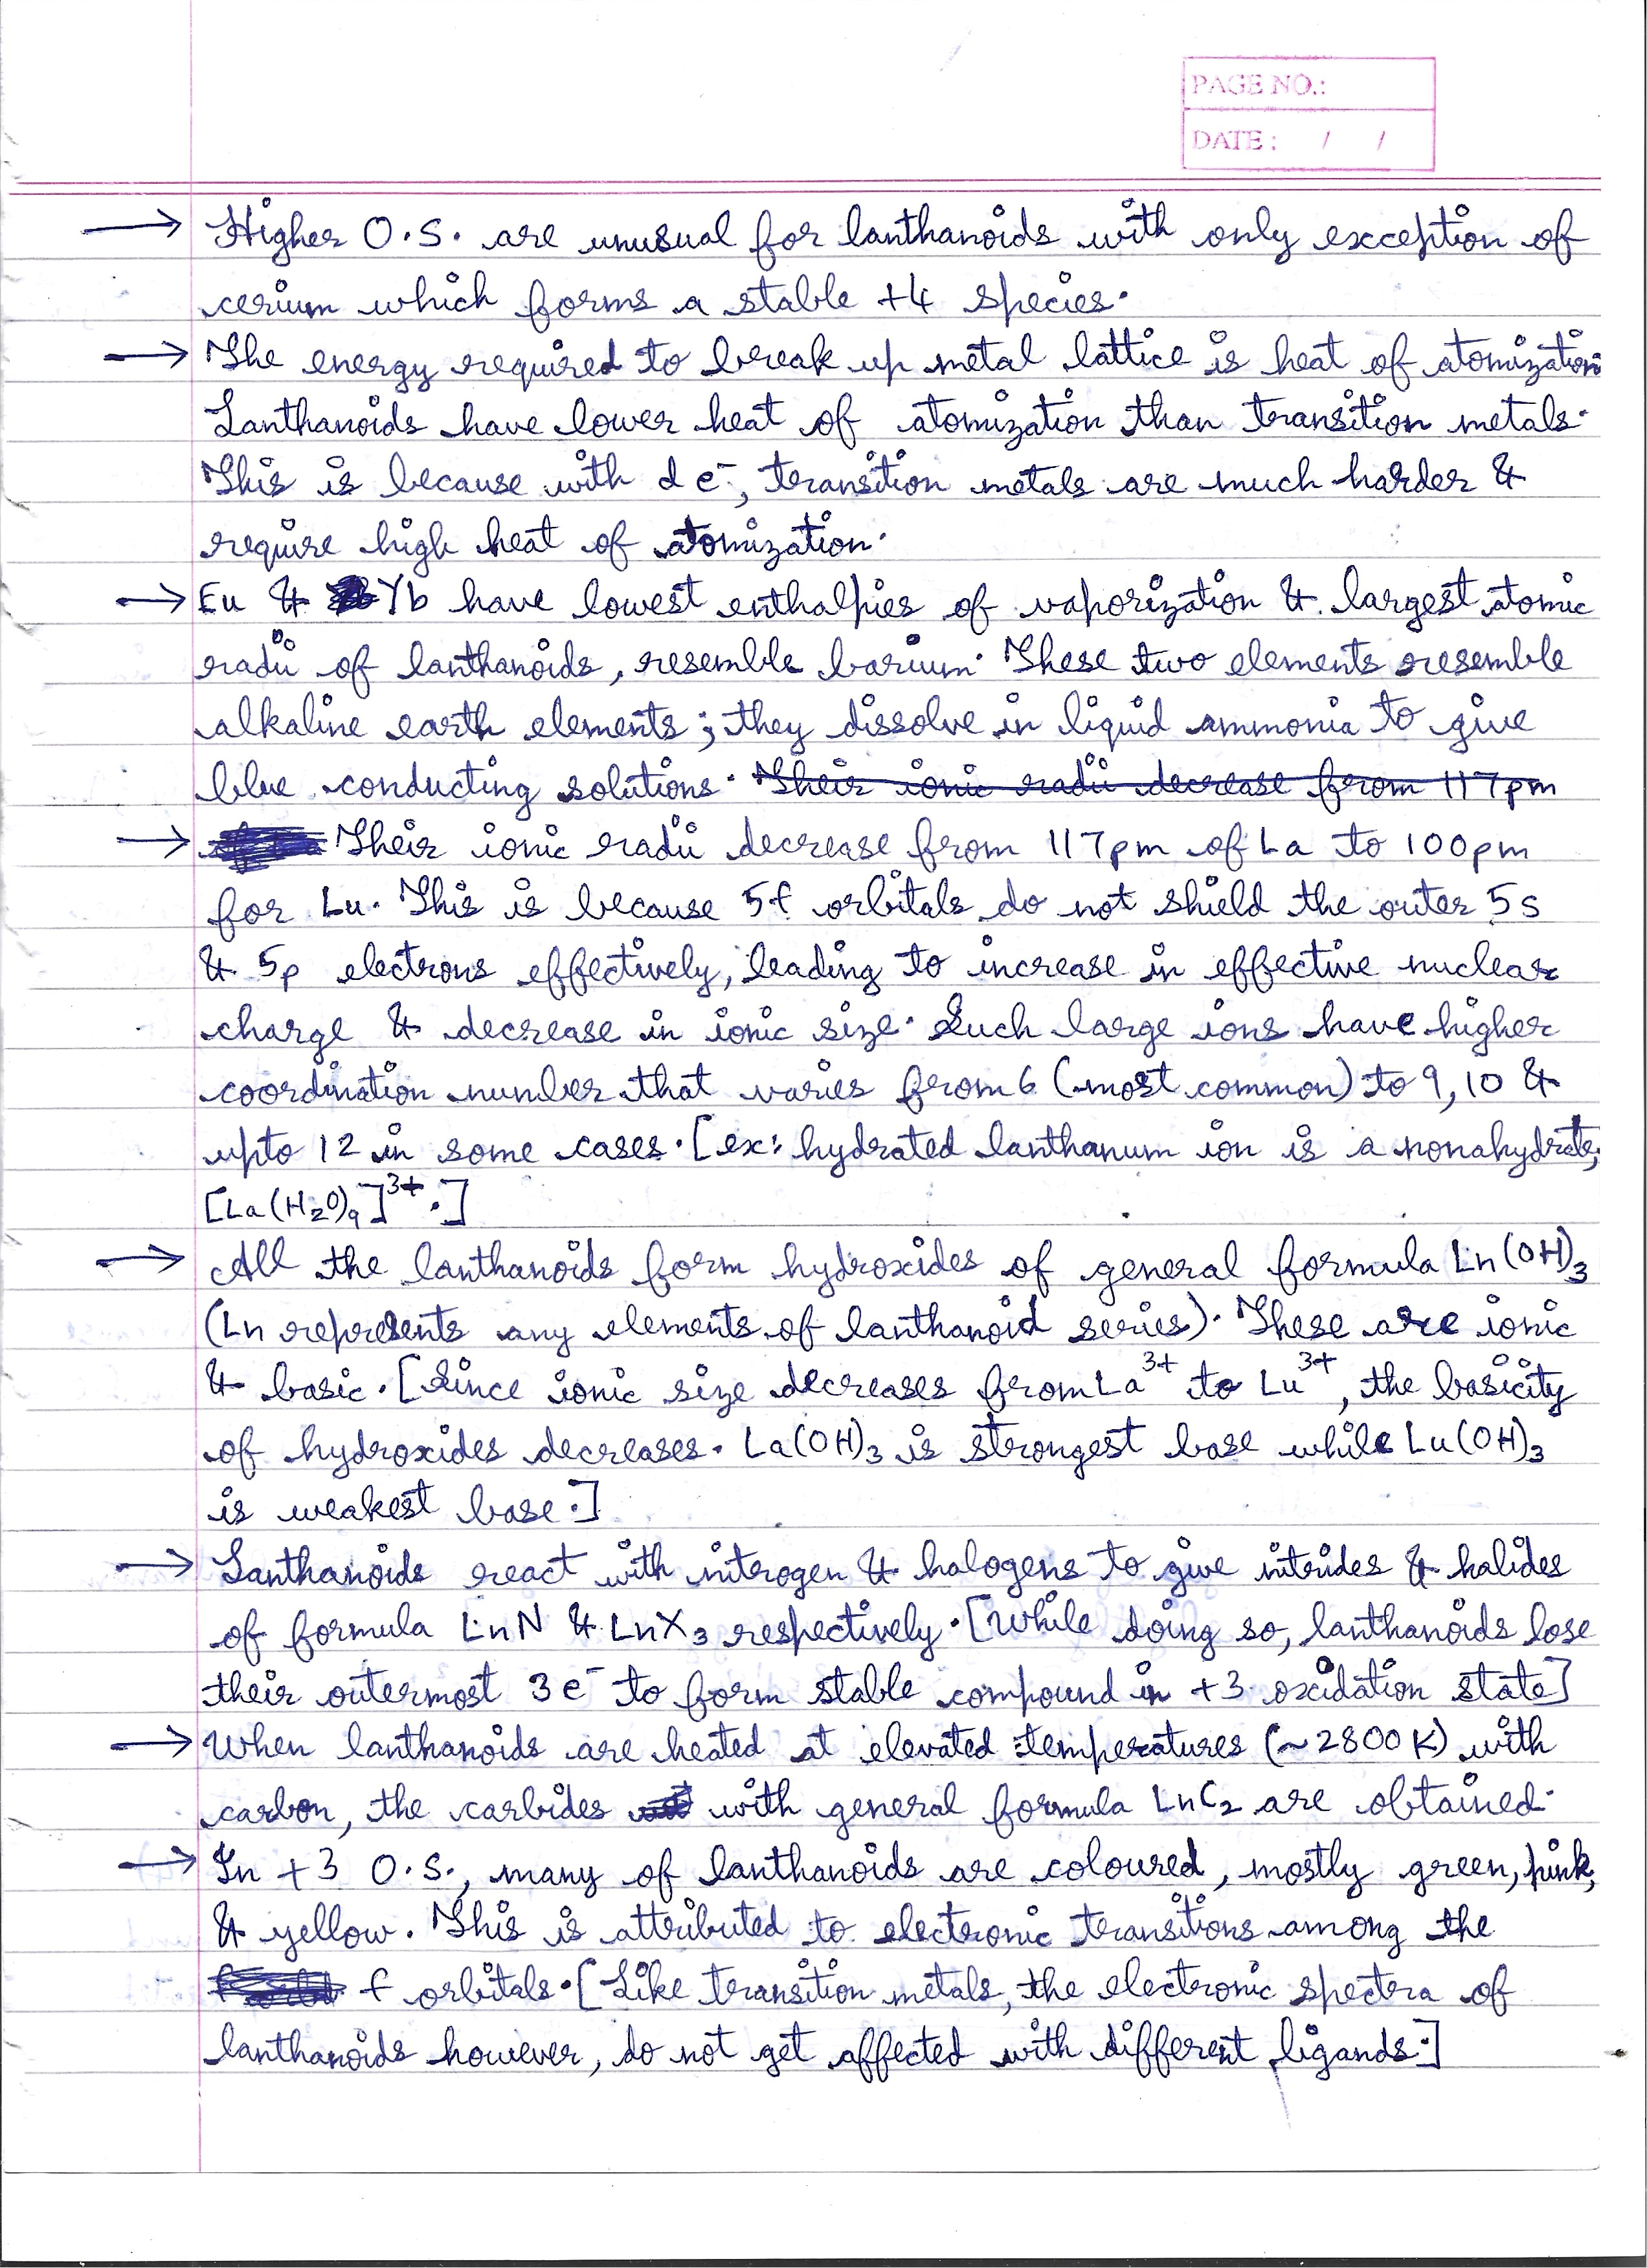 PAGE NO.:
DATE: / /
→ Higher O.S. are unusual for lanthanoids with only exception of
cerium which forms a stable +4 species.
→ The energy required to break up metal lattice is heat of atomization
Lanthanoids have lower heat of atomization than transition metals.
This is because with d e⁻, transition metals are much harder &
require high heat of atomization.
→ Eu & Yb have lowest enthalpies of vaporization & largest atomic
radii of lanthanoids, resemble barium. These two elements resemble
alkaline earth elements; they dissolve in liquid ammonia to give
blue conducting solutions. Their ionic radii decrease from 117pm
→ Their ionic radii decrease from 117pm of La to 100pm
for Lu. This is because 5f orbitals do not shield the outer 5s
& 5p electrons effectively, leading to increase in effective nuclear
charge & decrease in ionic size. Such large ions have higher
coordination number that varies from 6 (most common) to 9, 10 &
upto 12 in some cases. [ex: hydrated lanthanum ion is a nonahydrate,
[La(H₂O)₉]³⁺.]
→ All the lanthanoids form hydroxides of general formula Ln(OH)₃
(Ln represents any elements of lanthanoid series). These are ionic
& basic. [Since ionic size decreases from La³⁺ to Lu³⁺, the basicity
of hydroxides decreases. La(OH)₃ is strongest base while Lu(OH)₃
is weakest base.]
→ Lanthanoids react with nitrogen & halogens to give nitrides & halides
of formula LnN & LnX₃ respectively. [While doing so, lanthanoids lose
their outermost 3e⁻ to form stable compound in +3 oxidation state]
→ When lanthanoids are heated at elevated temperatures (~2800K) with
carbon, the carbides with general formula LnC₂ are obtained.
→ In +3 O.S., many of lanthanoids are coloured, mostly green, pink,
& yellow. This is attributed to electronic transitions among the
f orbitals. [Like transition metals, the electronic spectra of
lanthanoids however, do not get affected with different ligands.]